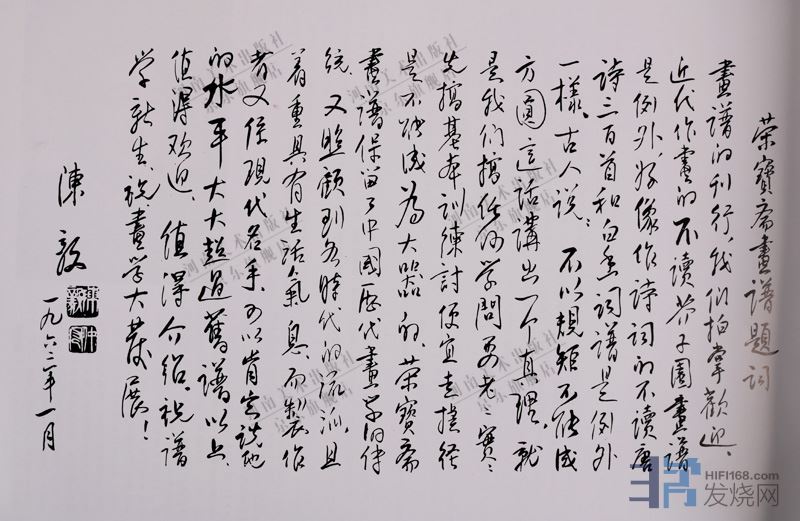 荣寶斋畫譜題词
畫譜的刊行，我们拍掌歡迎、
近代作畫的不读芥子園畫譜
是例外，好像作詩词的不讀唐
詩三百首和白香词譜是例外
一樣。古人说：不以規矩不能成
方圓，這话講出一个真理，就
是我们搞任何学問要老老實實
先搞基本訓練，討便宜走捷径
是不能成为大器的。荣寶斋
畫譜保留了中國历代畫学的传
统，又照顧到各時代的流派，且
着重具有生活氣息，而製作
者又係現代名手，可以肯定說他
的水平大大超過舊譜以上，
值得欢迎，值得介绍，祝譜
学新生，祝畫学大發展！
陳毅
一九六二年一月
河南美术出版社
京东旗舰店
HIFI168.com
发烧网